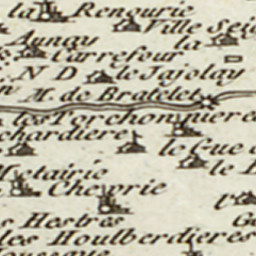 la Renourie
Ville Sei
Aunay
la
Carrefour
N D le Jajolay
M. de Bratelet
les Torchonnieres
chardiere
le Gue
le
Metairie
Chevrie
s Hesbres
les Houlberdieres